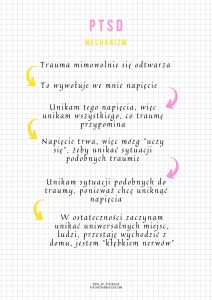 PTSD
MECHANIZM
Trauma mimowolnie się odtwarza
To wywołuje we mnie napięcie
Unikam tego napięcia, więc
unikam wszystkiego, co traumę
przypomina
Napięcie trwa, więc mózg "uczy
się", żeby unikać sytuacji
podobnych traumie
Unikam sytuacji podobnych do
traumy, ponieważ chcę uniknąć
napięcia
W ostateczności zaczynam
unikać uniwersalnych miejsc,
ludzi, przestaję wychodzić z
domu, jestem "kłębkiem nerwów"